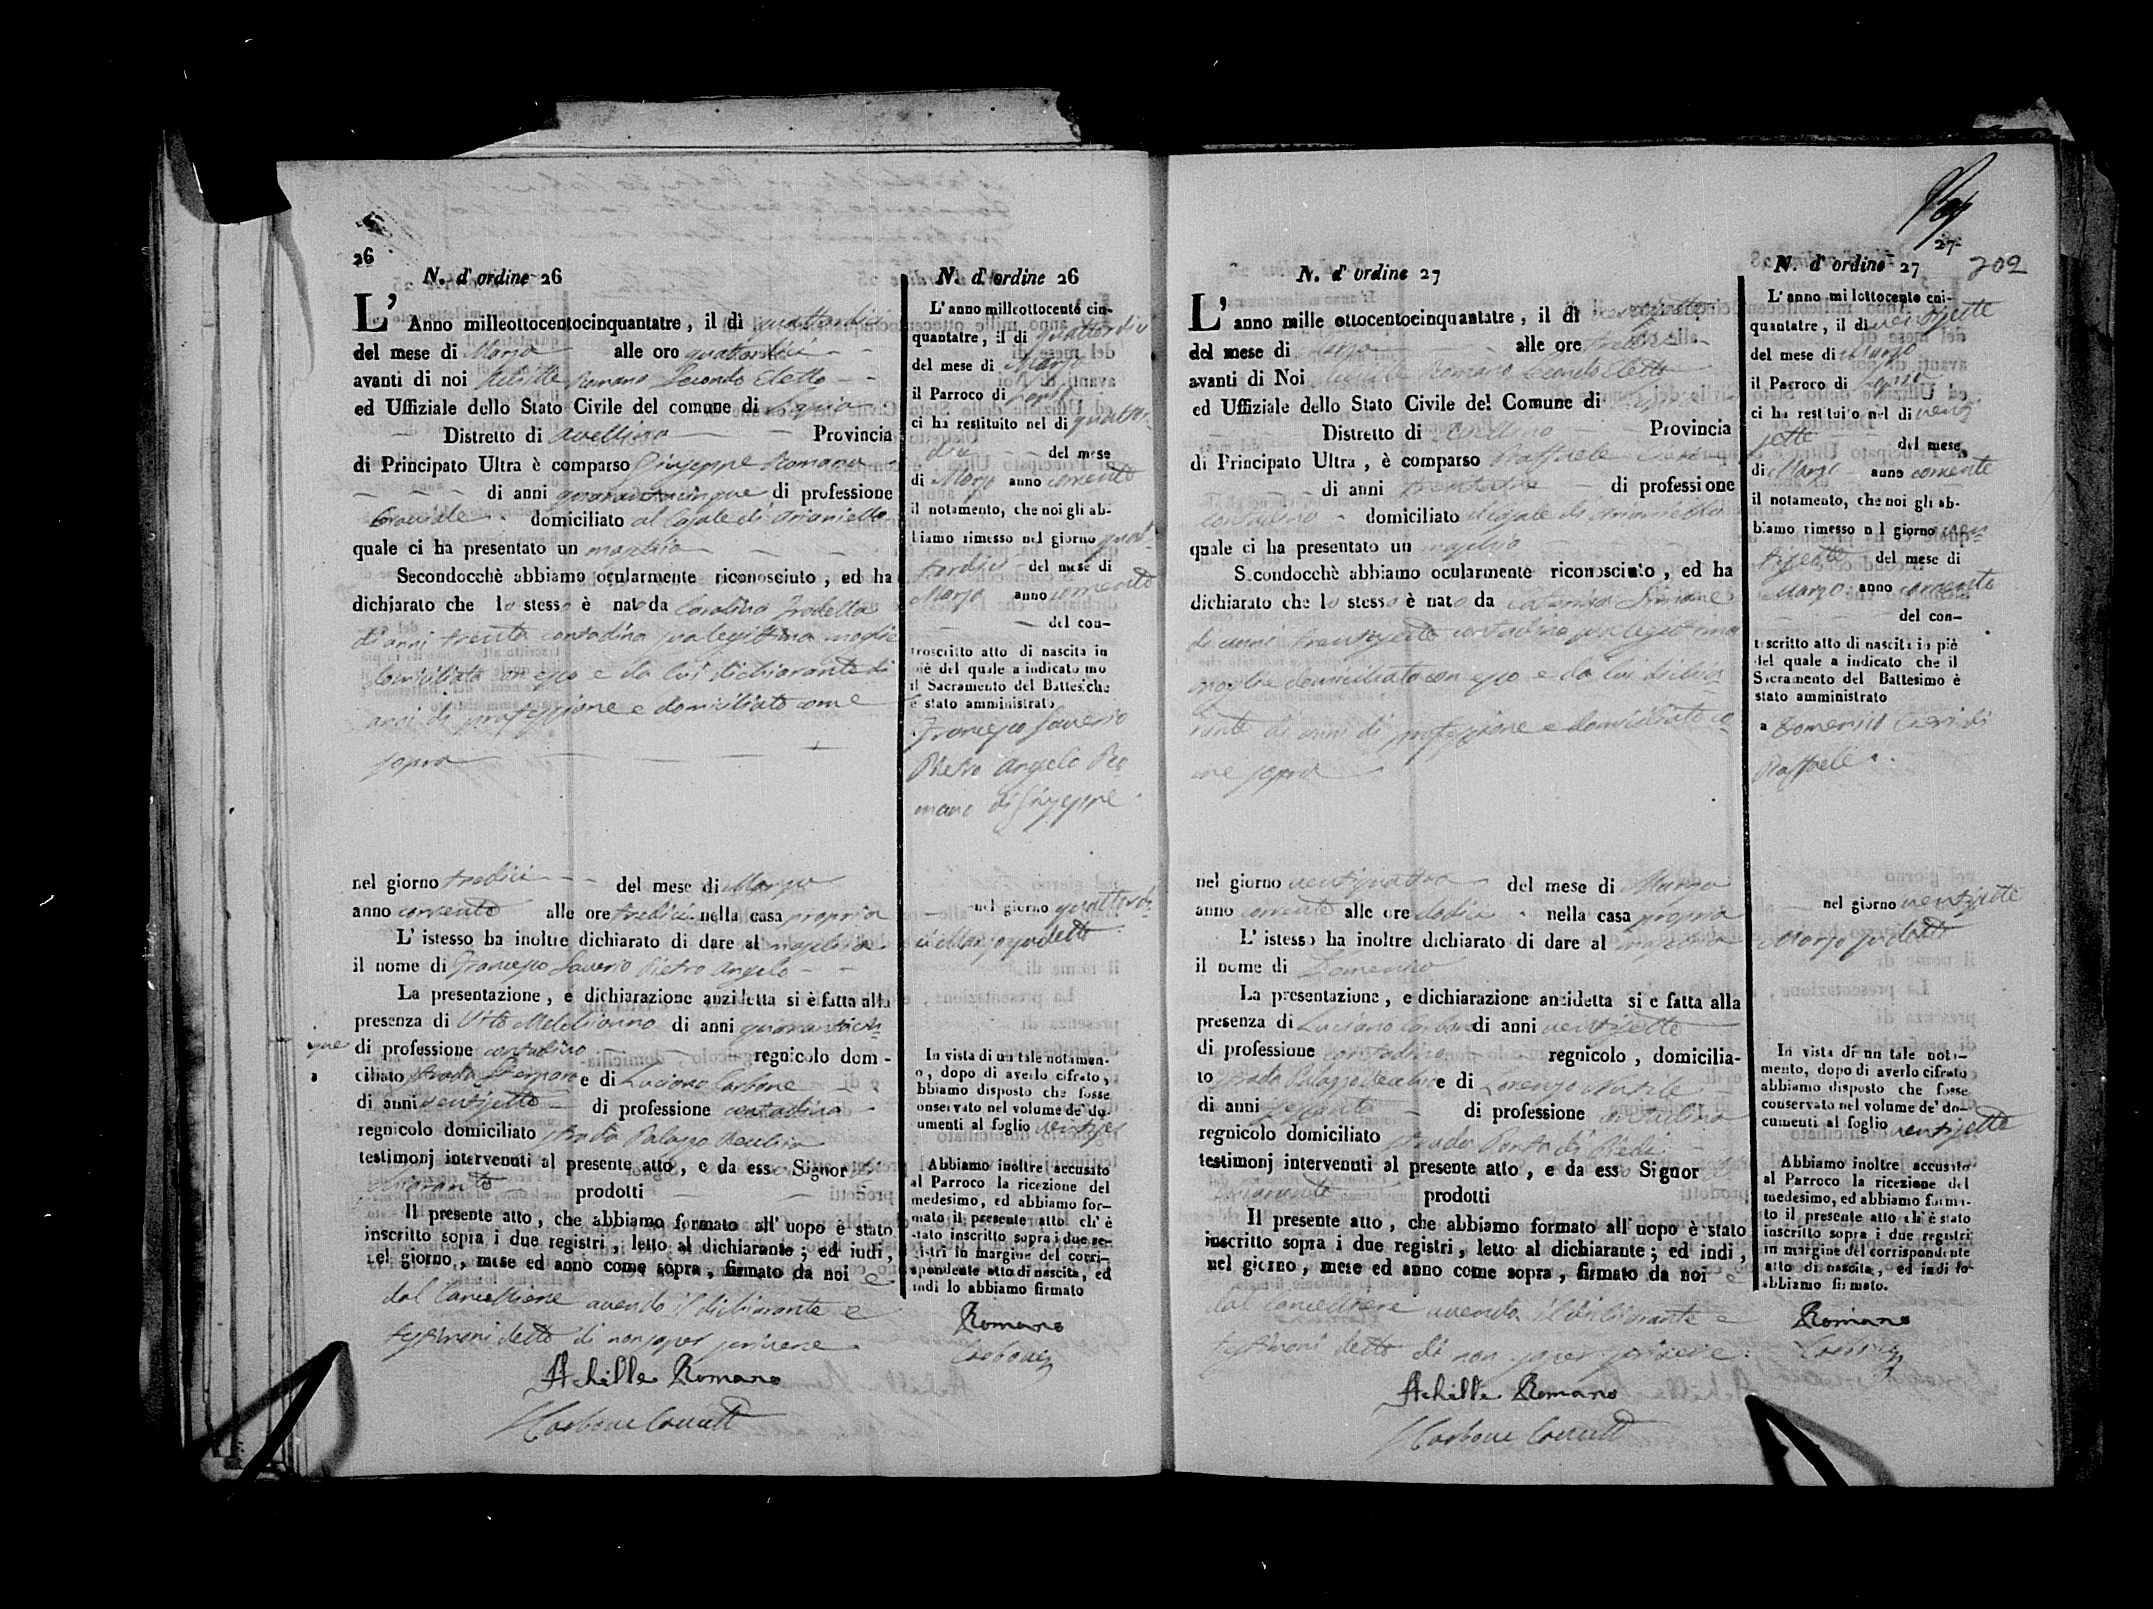 26
N. d' ordine 26
L' Anno milleottocentocinquantatre, il dì quattordici
del mese di Marzo alle oro quattordici
avanti di noi Achille Romano Secondo Eletto
ed Uffiziale dello Stato Civile del comune di
Distretto di Avellino Provincia
di Principato Ultra è comparso Giuseppe Romano
di anni quarantacinque di professione
domiciliato al Casale di
quale ci ha presentato un maschio
Secondocchè abbiamo ocularmente riconosciuto, ed ha
dichiarato che lo stesso è nato da Carolina
di anni trenta contadina sua legittima moglie
domiciliata con esso e da lui dichiarante di
anni di professione e domiciliato come
sopra
nel giorno tredici del mese di Marzo
anno corrente alle ore tredici nella casa propria
L' istesso ha inoltre dichiarato di dare al maschio
il nome di Francesco Saverio Pietro Angelo
La presentazione, e dichiarazione anzidetta si è fatta alla
presenza di Vito di anni quarantacin
que di professione contadino regnicolo dom-
ciliato strada e di Luciano Carbone
di anni ventisette di professione contadino
regnicolo domiciliato strada Palazzo Vecchio
testimonj intervenuti al presente atto, e da ess Signor
prodotti
Il presente atto, che abbiamo formato all' uopo è stato
inscritto sopra i due registri, letto al dichiarante; ed indi,
nel giorno, mese ed anno come sopra, firmato da noi e
dal Cancelliere avendo il dichiarante e
testimoni detto di non saper scrivere
Achille Romano
Carbone
N. d' ordine 26
L' anno milleottocento cin-
quantatre, il di quattordici
del mese di Marzo
il Parroco di
ci ha restituito nel di quattor-
dici del mese
di Marzo anno corrente
il notamento, che noi gli ab-
biamo rimesso nel giorno quat-
tordici del mese di
Marzo anno corrente
del con-
troscritto atto di nascita in
piè del quale a indicato mo
il Sacramento del Battes.che
è stato amministrato
Francesco Saverio
Pietro Angelo Ro
mano di Giuseppe
nel giorno quattordi-
ci Marzo sudetto
In vista di un tale notamen-
o, dopo di averlo cifrato,
bbiamo disposto che fosse
onservato nel volume de' do-
umenti al foglio ventisei
Abbiamo inoltre accusato
al Parroco la ricezione del
medesimo, ed abbiamo for-
mato il presente atto ch' è
stato inscritto sopra i due re-
istri in margine del corri-
spondente atto di nascita, ed
indi lo abbiamo firmato
Romano
Carbone
27
202
N. d' ordine 27
L' anno mille ottocentocinquantatre, il di ventisette
del mese di Marzo alle ore
avanti di Noi Achille Romano Secondo Eletto
ed Uffiziale dello Stato Civile del Comune di
Distretto di Avellino Provincia
di Principato Ultra, è comparso Raffaele
di anni di professione
contadino domiciliato Casale di
quale ci ha presentato un maschio
Secondocchè abbiamo ocularmente riconosciuto, ed ha
dichiarato che lo stesso è nato da Caterina
di anni trentasette contadina sua legittima
moglie domiciliata con esso e da lui dichia
rante di anni di professione e domiciliato co
me sopra
nel giorno ventiquattro del mese di Marzo
anno corrente alle ore dodici nella casa propria
L' istesso ha inoltre dichiarato di dare al maschio
il nome di Domenico
La presentazione, e dichiarazione ansidetta si e fatta alla
presenza di Luciano Carbone di anni ventisette
di professione contadino regnicolo, domicilia-
to strada Palazzo Vecchio e di Lorenzo
di anni sessanta di professione contadino
regnicolo domiciliato strada
testimonj intervenuti al presente atto, e da ess Signor
prodotti
Il presente atto, che abbiamo formato all' uopo è stato
inscritto sopra i due registri, letto al dichiarante; ed indi,
nel giorno, mese ed anno come sopra, firmato da noi e
dal cancelliere avendo il dichiarante e
testimoni detto di non saper scrivere
Achille Romano
Carbone
N. d' ordine 27
L' anno mi lottocento cni-
quantatre, il di ventisette
del mese di Marzo
il Parroco di
ci ha restituito nel di venti
sette del mese
di Marzo anno corrente
il notamento, che noi gli ab-
biamo rimesso n l giorno ven-
tisette del mese di
Marzo anno corrente
del con-
troscritto atto di nascita in piè
del quale a indicato che il
Sacramento del Battesimo è
stato amministrato
a Domenico di
Raffaele
nel giorno ventisette
Marzo sudetto
In vista di un tale nota-
mento, dopo di averlo cifrato
abbiamo disposto che fosse
conservato nel volume de' do-
cumenti al foglio ventisette
Abbiamo inoltre accusato
al Parroco la ricezione del
medesimo, ed abbiamo forma-
to il presente atto ch' è stato
inscritto sopra i due registri
in margine del corrispondente
atto di nascita, ed indi lo
abbiamo firmato.
Romano
Carbone